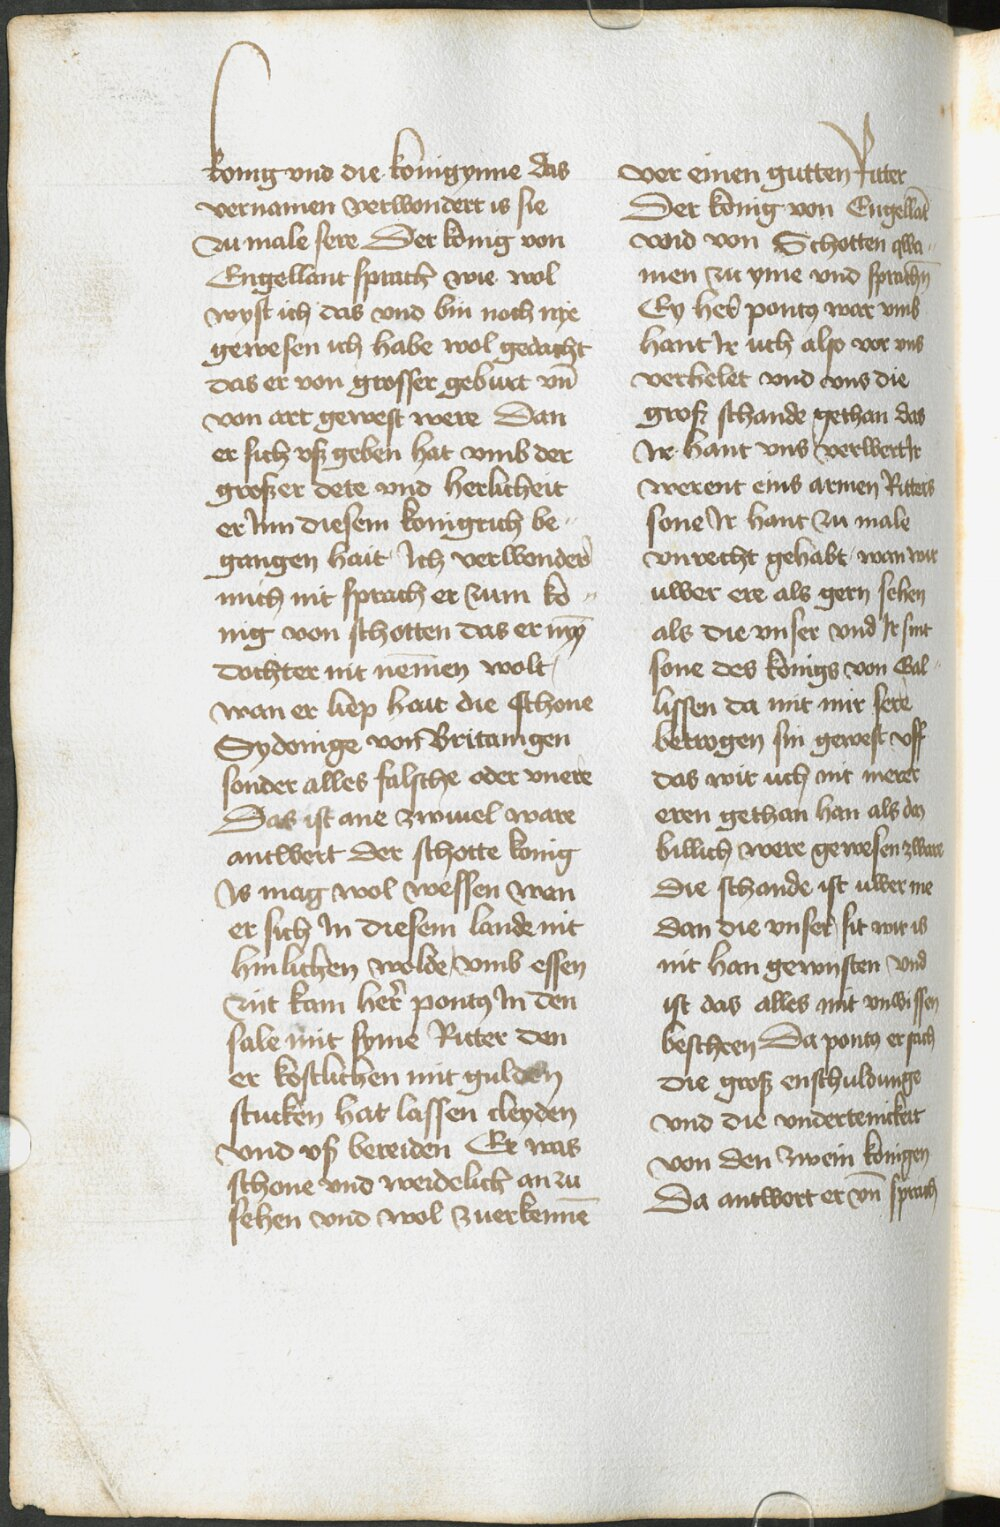 konig vnd die konigynne das
vernamen verwondert is sie
zu male sere Der konig von
Engellant sprach wie wol
wyst ich das vnd bin noch nye
gewesen ich habe wol gedacht
das er von grosser geburt vn̄
von art gewest were Dan
er sich vß geben hat vmb der
großer dete vnd herlicheit
er Inn diesem konigrich be„
gangen hait Ich verwonder
mich nit sprach er zum ko„
nig von schotten das er myn̄
dochter nit nem̄en wolt
wan er liep hait die schone
Sydonige von Britanigen
sonder alles falsche oder vnere
Das ist ane zwiuel ware
antwert der schotte konig
Is mag wol wessen wan
er sich In diesem lande nit
hinlichen wolde vmb essen
zijt kam her̄ pontus In den
sale mit syme Ritter den
er kostlichen mit gulden
stucken hat lassen cleyden
vnd vß bereiden Er was
schone vnd weidelich an zu
sehen vnd wol zuerkennē
vor einen gutten Ritter
Der konig von Engellāt
vnd von Schotten qwa„
men zu yme vnd sprachn̄
Ey her̄ pontus war vmb
hant Ir uch also vor vns
verhelet vnd vns die
groß schande gethan das
Ir hant vns verwert Ir
werent eins armen Ritters
sone Ir hant zu male
vnrecht gehabt wan wir
uwer ere als gern sehen
als die vnser vnd Ir sint
sone des konigs von Gal„
lissen da mit mir sere
betrogen sin gewest vff
das wir uch nit merer
eren gethan han als das
billich were gewesen zware
Die schande ist uwer me
dan die vnser sit wir is
nit han gewusten vnd
ist das alles mit vnwissen
bescheen Da pontus er sach
die groß enschuldunge
vnd die vndertenickeit
von den zwein konigen
Da antwort er vn̄ sprach